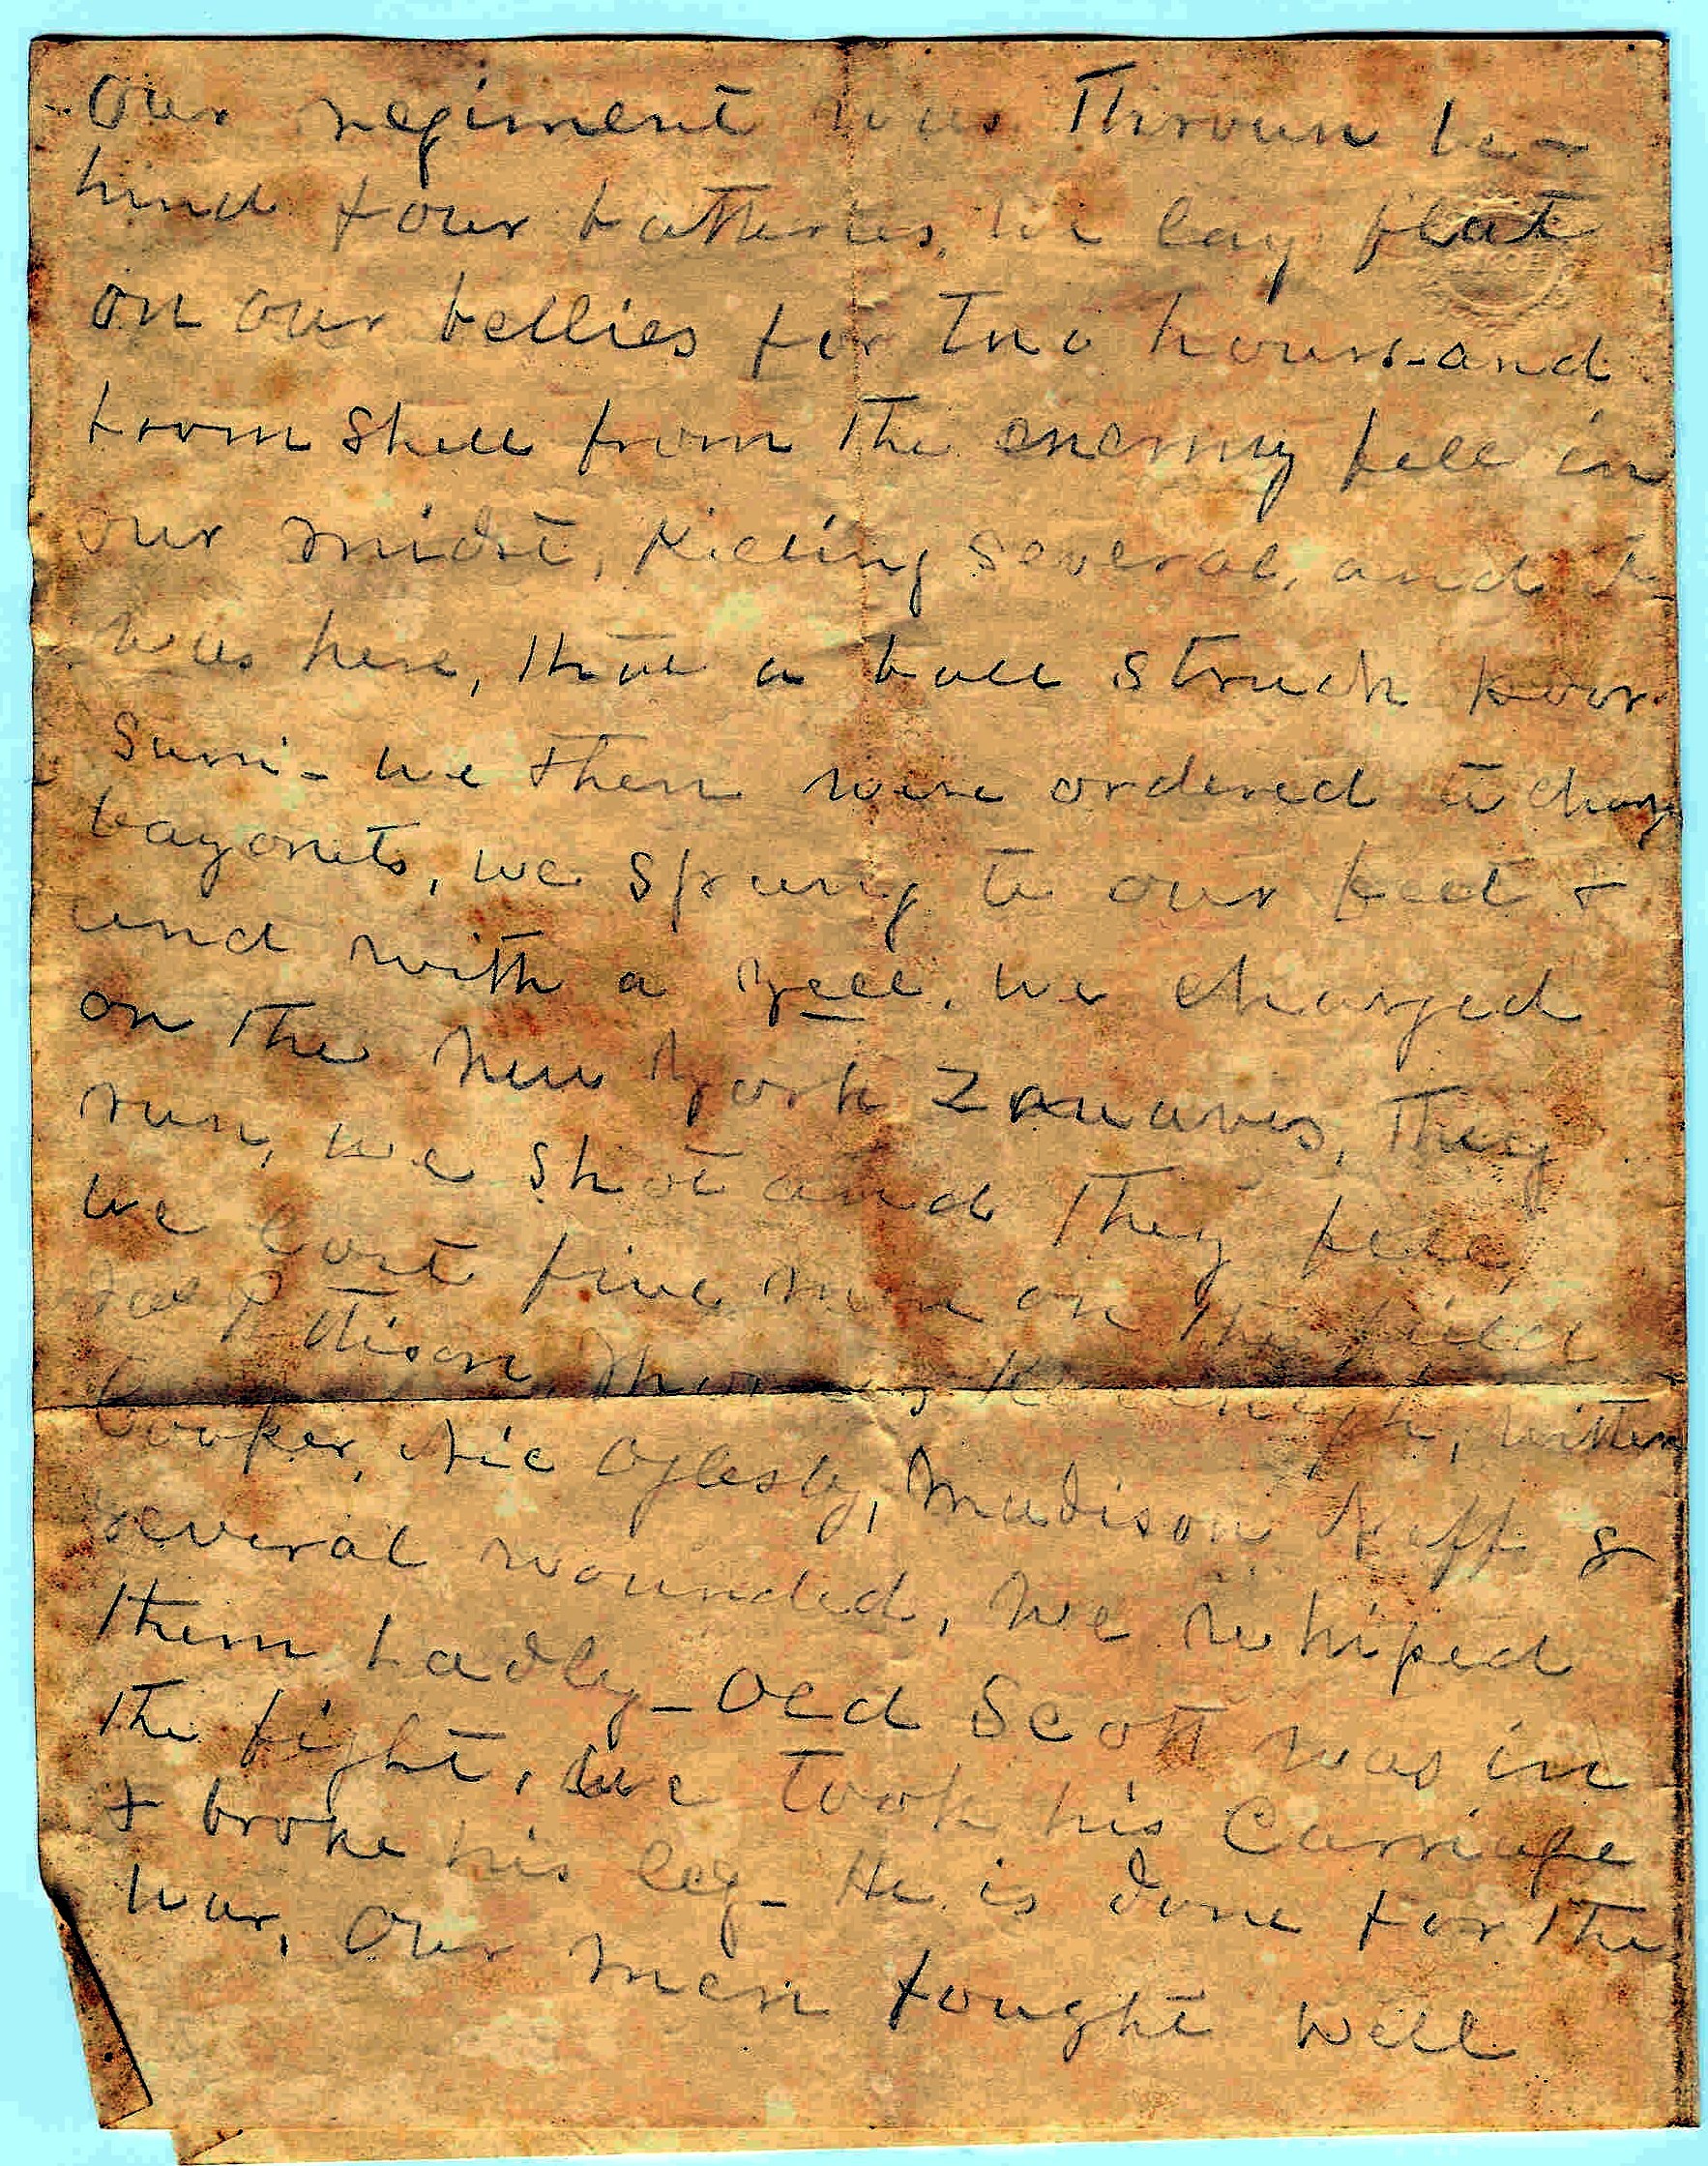 Our regiment was Thrown be-
hind four batteries, We lay flat
on our bellies for Two hours - and
boom shell from The enemy fell in
our midst, Killing several, and it
was here, that a ball struck poor
Sumi - we then were ordered to charge
bayonets, we sprung to our feet &
and with a yell, we charged
on The New York Zouaves, They
run, we shot and They fell,
we lost five men on The field
Thomas Kavenaugh, Witten
Cooper, Nic Oglesby, Madison Neff &
several wounded, We whiped
them badly - Old Scott was in
The fight, We Took his Carriage
& broke his leg - He is done for The
War, Our men fought well